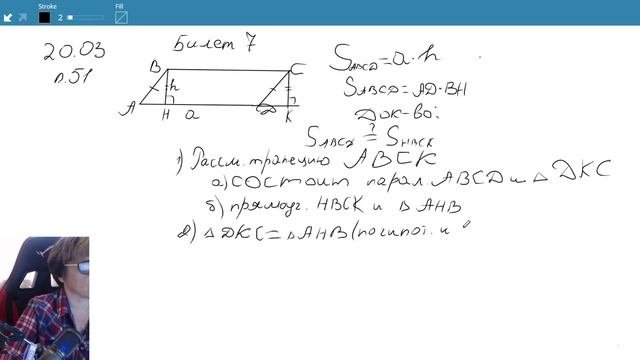 Stroke
2
Fill
20.03
п.51
Билет 7
B C
h
A H a D K
S ABCD = a·h
S ABCD = AD·BH
Док-во:
S ABCD ?= S HBCK
1) Рассм. трапецию ABCK
а) состоит парал. ABCD и △ DKC
б) прямоуг. HBCK и △ AHB
2) △ DKC = △ AHB (по гипот. и